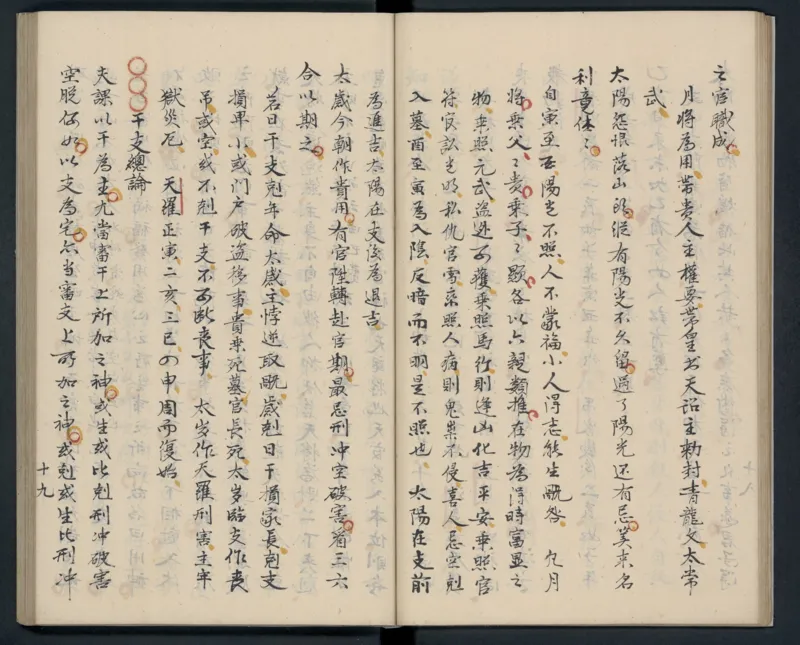 之官職成
月將為用帶貴人主權要帶皇书天詔主勅封青龍文太常
武
太陽怨恨落山的從有陽光不久留過了陽光还有忌美来名
利竟休
自寅至酉陽光不照人不蒙福小人得志能生 凡月
將乗父父貴乗子子顕各以六親類推在物為得時富显之
物乗照元武盗 必獲乗照馬行則逢凶化吉平安乗照官
符官訟光明私仇宫雪乗照人病則鬼祟不侵喜人忌空剋
入墓酉至寅為入陰反暗而不明是不照也 太陽在支前
為進吉太陽在支後為退吉
太歲今朝作貴用有官陞轉赴官期最忌刑冲空破害看三六
合以期之
若日干支剋年命太歲主悖逆取 歲剋日干損家長剋支
損卑小或门户破盗移事貴乗死墓官長死太歲臨支作喪
吊或空或不剋干支不必断喪事 太岁作天羅刑害主牢
獄災厄 天羅正寅二亥三巳四申周而復始
干支總論
夫課以干為主凡當審干上所加之神或生或比剋刑冲破害
空脱何如以支為宅亦当審支上所加之神或剋或生比刑冲
十九